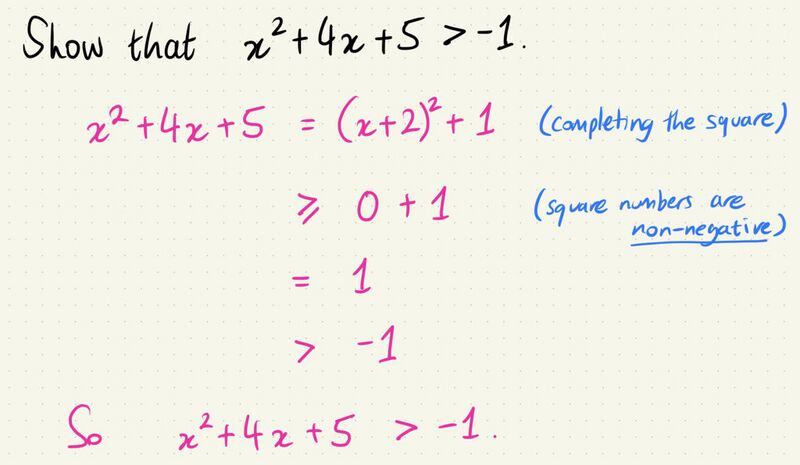 Show that x²+4x+5 > -1.
x²+4x+5 = (x+2)²+1 (completing the square)
⩾ 0+1 (square numbers are
non-negative)
= 1
> -1
So x²+4x+5 > -1.